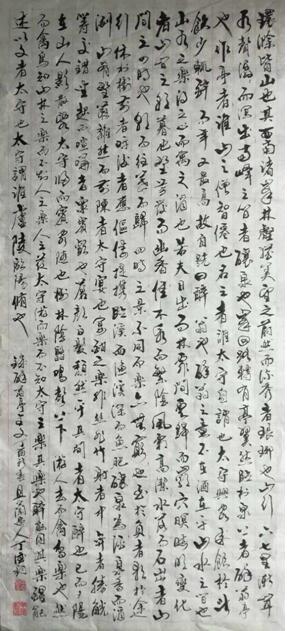 環滁皆山也其西南諸峰林壑尤美望之蔚然而深秀者琅琊也山行六七里漸聞
水聲潺潺而瀉出於兩峰之間者釀泉也峰回路轉有亭翼然臨於泉上者醉翁亭
也作亭者誰山之僧智僊也名之者誰太守自謂也太守與客來飲於此
飲少輒醉而年又最高故自號曰醉翁也醉翁之意不在酒在乎山水之間也
山水之樂得之心而寓之酒也若夫日出而林霏開雲歸而巖穴暝晦明變化
者山間之朝暮也野芳發而幽香佳木秀而繁陰風霜高潔水落而石出者山
間之四時也朝而往暮而歸四時之景不同而樂亦無窮也至於負者歌於途
行者休於樹前者呼後者應傴僂提攜臨溪而漁溪深而魚肥釀泉為酒泉香而酒
洌山肴野蔌雜然而前陳者太守宴也宴酣之樂非絲非竹射者中弈者勝觥
籌交錯坐起而諠譁者眾賓歡也蒼顏白髮頹然乎其間者太守醉也已而夕陽
在山人影散亂太守歸而賓客從也樹林陰翳鳴聲上下遊人去而禽鳥樂也然
而禽鳥知山林之樂而不知人之樂人知從太守遊而樂而不知太守之樂其樂也醉能同其樂醒能
述以文者太守也太守謂誰廬陵歐陽修也